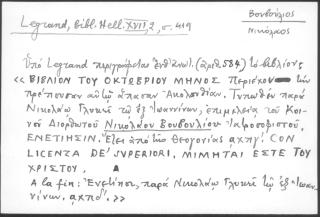 Legrand, Bibl. Hell. XVII, 2, σ. 419
Βουβούλιος
Νικόλαος
Ὑπὸ Legrand περιγράφεται ἐνθ' ἀνωτ. (ἀριθ. 584) τὸ βιβλίον:
« ΒΙΒΛΙΟΝ ΤΟΥ ΟΚΤΩΒΡΙΟΥ ΜΗΝΟΣ Περιέχον τὴν
πρέπουσαν αὐτῷ ἅπασαν Ἀκολουθίαν. Τυπωθὲν παρὰ
Νικολάῳ Γλυκεῖ τῷ ἐξ Ἰωαννίνων, ἐπιμελείᾳ τοῦ Κοι-
νοῦ Διορθωτοῦ Νικολάου Βουβουλίου Ἰατροσοφιστοῦ.
ΕΝΕΤΙΗΣΙΝ. Ἔτει ἀπὸ τῆς Θεογονίας αχπγ'. CON
LICENZA DE' SUPERIORI, ΜΙΜΗΤΑΙ ΕΣΤΕ ΤΟΥ
ΧΡΙΣΤΟΥ.
A la fin: Ἐνετίησι, παρὰ Νικολάῳ Γλυκεῖ τῷ ἐξ Ἰωαν-
νίνων. αχπγ'. »